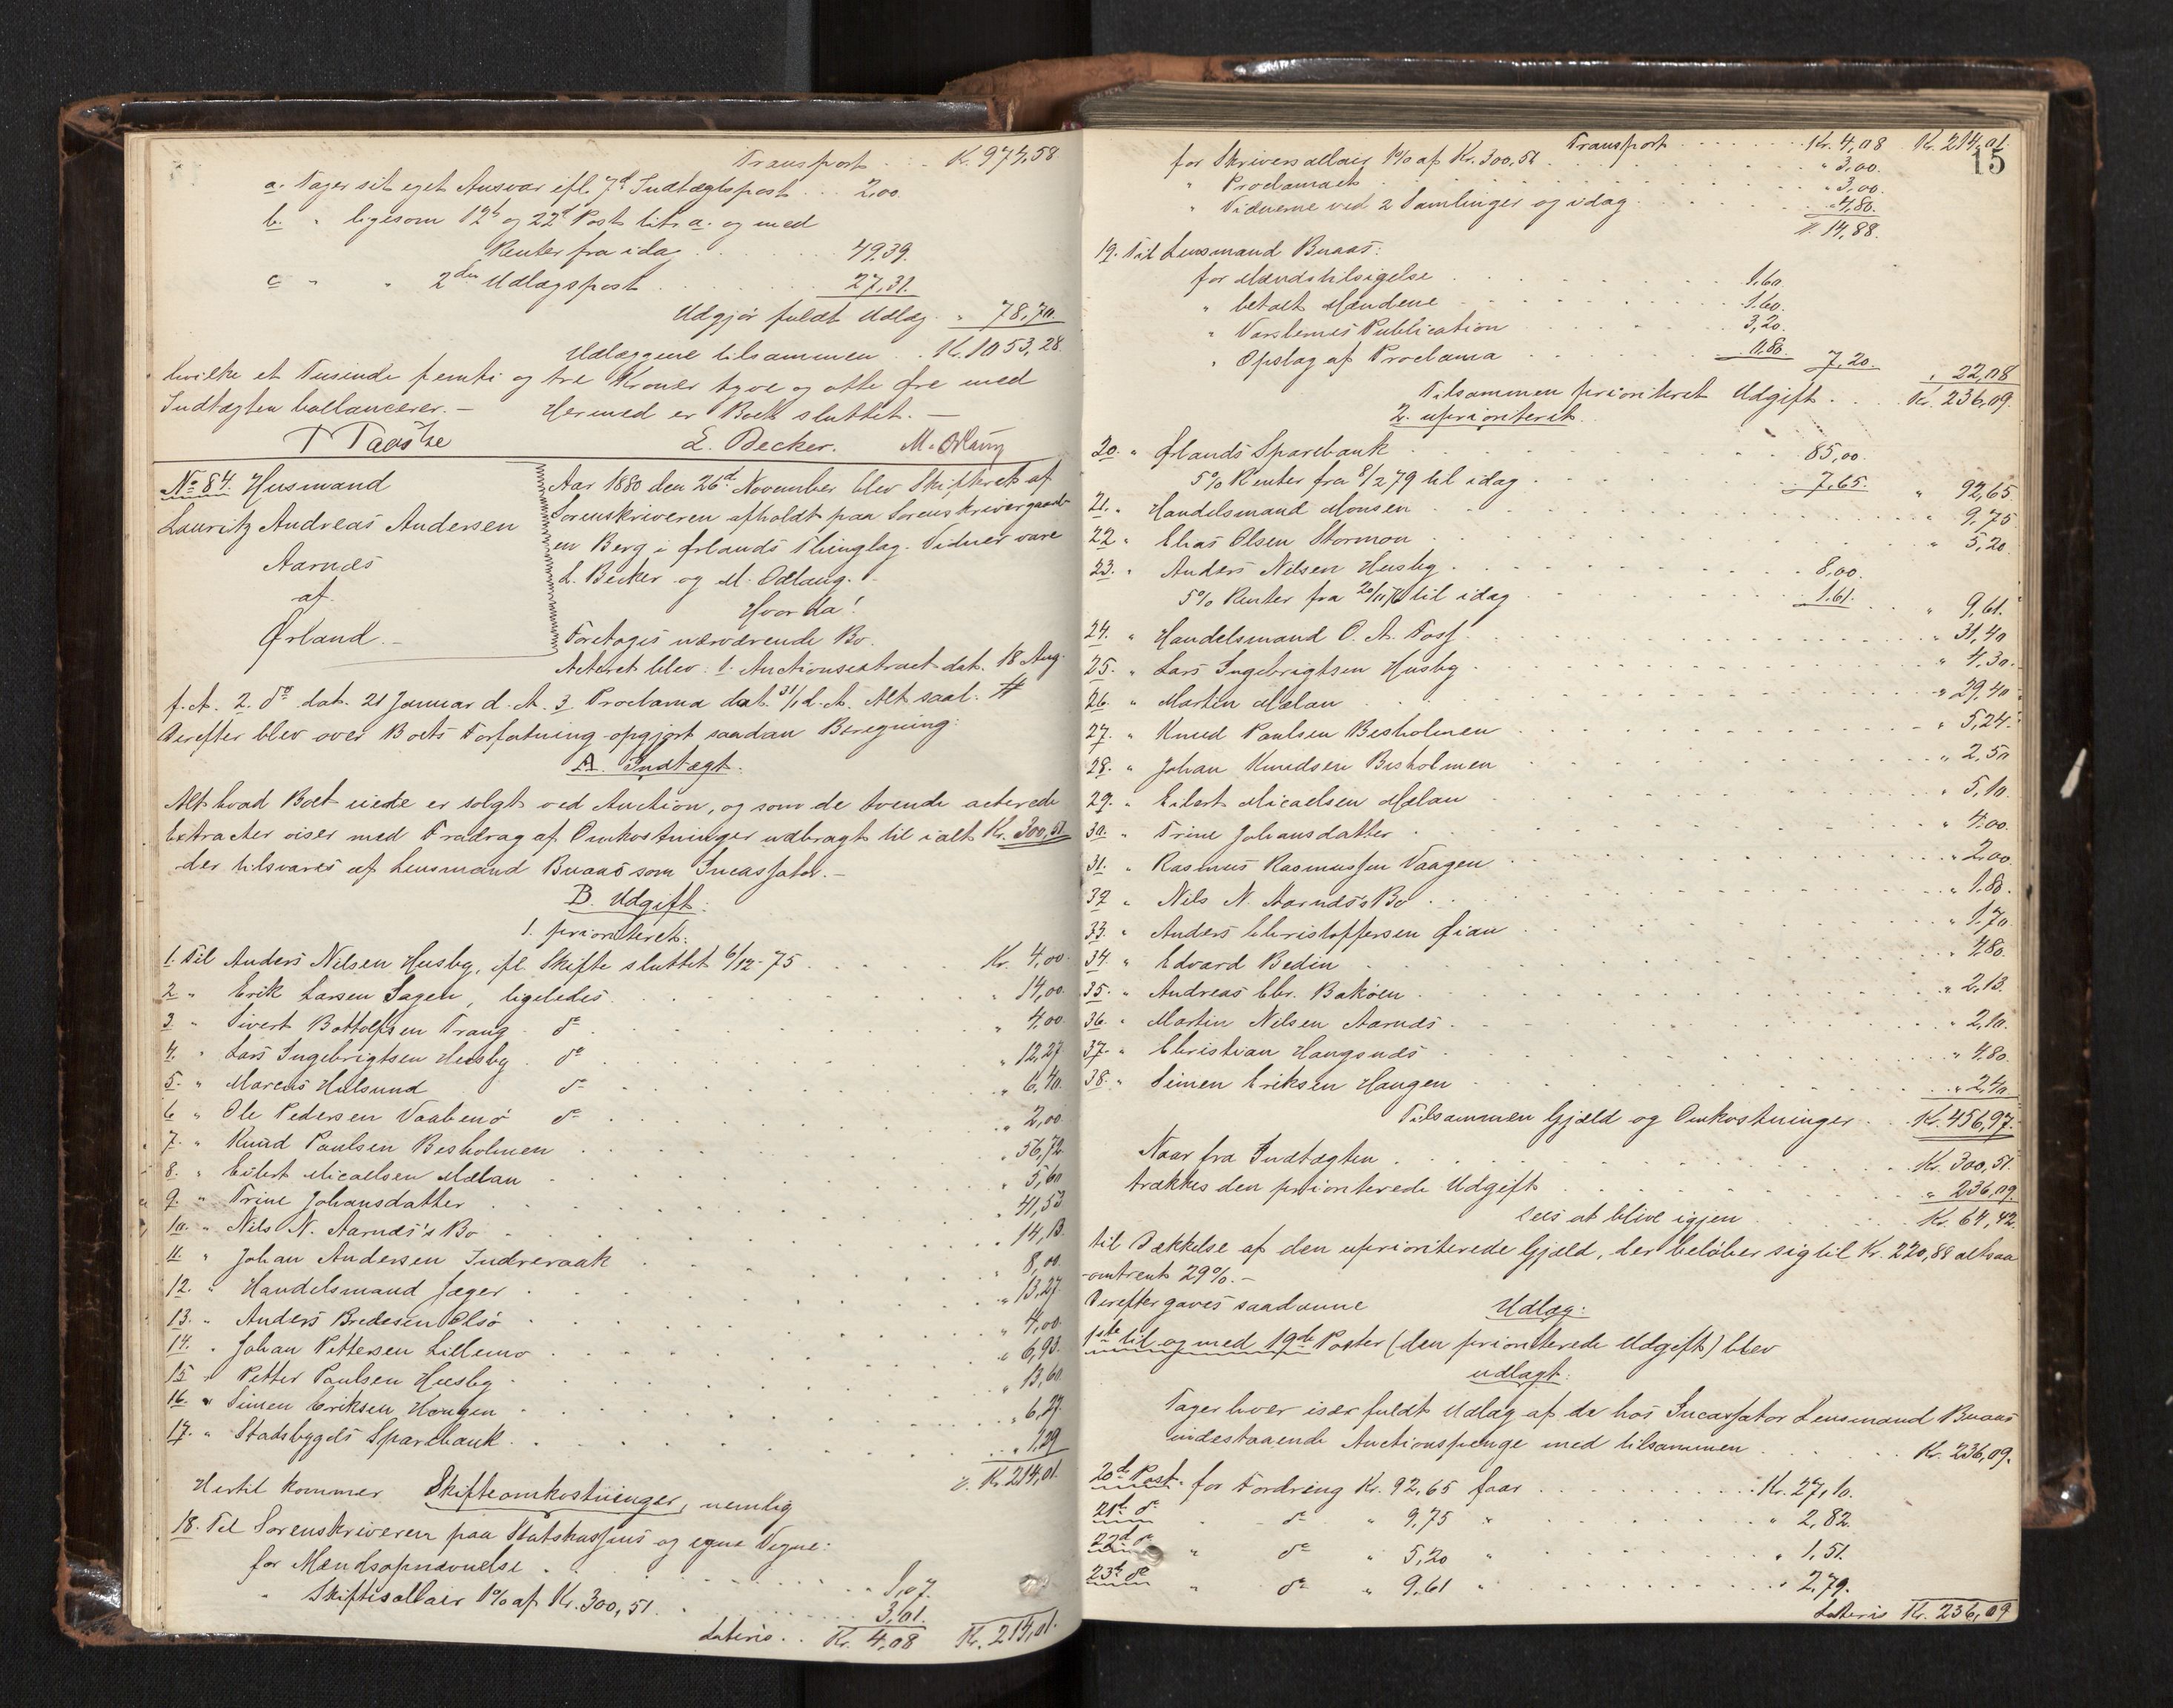 Transport . . . Kr. 974,58
a. Tager sit eget Ansvar ifl. 7d Indtægtspost . . . 2,00.
b. " ligesom 12te og 22d Post litr. a. og med
Renter fra idag . . . 49,39.
c " " 2den Udlægspost . . . 27,31.
Udgjør fuldt Udlæg . " 78,70.
Udlæggene tilsammen . . Kr. 1053,28.
hvilke et Tusende femti og tre Kroner tyve og otte Øre med
Indtægten ballancerer. — Hermed er Boet sluttet. —
L. Becker.
No 84. Husmand
Lauritz Andreas Andersen
Aarnæs
af
Ørland. —
Aar 1880 den 26d November blev Skifteret af
Sorenskriveren afholdt paa Sorenskrivergaard-
en Berg i Ørlands Thinglag. Vidner vare
L. Becker og M. Ødlaug. —
Hvorda!
Foretoges nærværende Bo.
Acteret blev: 1. Auctionsextract dat. 18 Aug.
f. A. 2. do dat. 21 Januar d. A. 3 Proclama dat. 31/1 d. A. Alt saal. #
Derefter blev over Boets Forfatning opgjort saadan Beregning:
A. Indtægt.
Alt hvad Boet eiede er solgt ved Auction, og som de tvende acterede
Extracter viser med Fradrag af Omkostninger udbragt til ialt Kr. 300,51
der tilsvares af Lensmand Buaas som Incassator. —
B. Udgift:
1. prioriteret:
1. Til Anders Nilsen Husby, ifl. Skifte sluttet 6/12-75 . . . Kr. 4,00.
2 " Erik Larsen Hagen, ligeledes . . . " 14,00.
3 " Sivert Bottolfsen Trang do . . . " 4,00.
4. " Lars Ingebrigtsen Husby do . . . " 12,27
5. " Marcus Hulsund do . . . " 6,40.
6 " Ole Pedersen Vaabenø do . . . " 2,00.
7. " Knud Paulsen Besholmen . . . " 56,72.
8. " Eilert Micaelsen Mælan . . . " 5,60
9. " Trine Johansdatter . . . " 41,53
10. " Nils N. Aarnæs's Bo . . . " 14,13.
11. " Johan Andersen Indreraak . . . " 8,00.
12. " Handelsmand Jæger . . . " 13,27.
13. " Anders Bredesen Olsø . . . " 4,00.
14. " Johan Pettersen Lillemo . . . " 6,93.
15 " Petter Paulsen Husby . . . " 13,60.
16. " Simen Eriksen Haugen . . . " 6,27.
17. " Stadsbygds Sparebank . . . " 1,29
Kr. 214,01.
Hertil kommer Skifteomkostninger, nemlig
18. Til Sorenskriveren paa Statskassens og egne Vegne:
for Mændsopnævnelse . . . 1,07.
" Skiftesallair 1% af Kr. 300,51 . . . 3,01.
Lateris . . Kr. 4,08 Kr. 214,01.
15
Transport . . . Kr. 4,08 Kr. 214,01.
for Skriversallair 1% af Kr. 300,51 . . . " 3,00.
" Proclamaet . . . " 3,00.
" Vidnerne ved 2 Samlinger og idag . . . " 4,80.
14,88.
19. Til Lensmand Buaas:
for Mændstilsigelse . . . 1,60.
" betalt Mændene . . . 1,60.
" Varslernes Publication . . . 3,20.
" Opslag af Proclama . . . 0,80. 7,20. " 22,08
Tilsammen prioriteret Udgift . . . Kr. 236,09.
2. uprioriteret
20. " Ørlands Sparebank . . . 85,00.
5% Renter fra 8/2 79 til idag . . . 7,65. " 92,65.
21. " Handelsmand Monsen . . . " 9,75
22 " Elias Olsen Stormon . . . " 5,20.
23. " Anders Nilsen Husby . . . 8,00.
5% Renter fra 20/11 76 til idag . . . 1,61. " 9,61.
24. " Handelsmand O. A. Foss . . . " 31,40
25. " Lars Ingebrigtsen Husby . . . " 4,30.
26. " Martin Mælan . . . " 29,40
27. " Knud Paulsen Besholmen . . . " 5,24.
28. " Johan Knudsen Besholmen . . . " 2,50
29. " Eilert Micaelsen Mælan . . . " 5,10.
30. " Trine Johansdatter . . . " 4,00.
31. " Rasmus Rasmussen Vaagen . . . " 2,00.
32 " Nils N. Aarnæs's Bo . . . " 1,80.
33. " Anders Christoffersen Øian . . . " 1,70
34 " Edvard Bedin . . . " 4,80.
35. " Andreas Chr. Bakøen . . . " 2,13.
36. " Martin Nilsen Aarnæs . . . " 2,10.
37. " Christian Haugsnæs . . . " 4,80.
38. " Simen Eriksen Haugen . . . " 2,40.
Tilsammen Gjæld og Omkostninger . . Kr. 456,97.
Naar fra Indtægten . . . Kr. 300,51.
trækkes den prioriterede Udgift . . . " 236,09
sees at blive igjen . . . Kr. 64,42.
til Dækkelse af den uprioriterede Gjæld, der beløber sig til Kr. 220,88 altsaa
omtrent 29%. —
Derefter gaves saadanne Udlæg:
1ste til og med 19de Poster (den prioriterede Udgift) blev
udlagt:
Tager hver især fuldt Udlæg af de hos Incassator Lensmand Buaas
indestaaende Auctionspenge med tilsammen . . . Kr. 236,09.
20de Post. for Fordring Kr. 92,65 faar . . . Kr. 27,10.
21de do " do " 9,75 " . . . " 2,82.
22d do " do " 5,20 " . . . " 1,51.
23de do " do " 9,61 " . . . " 2,79.
Lateris Kr. 236,09